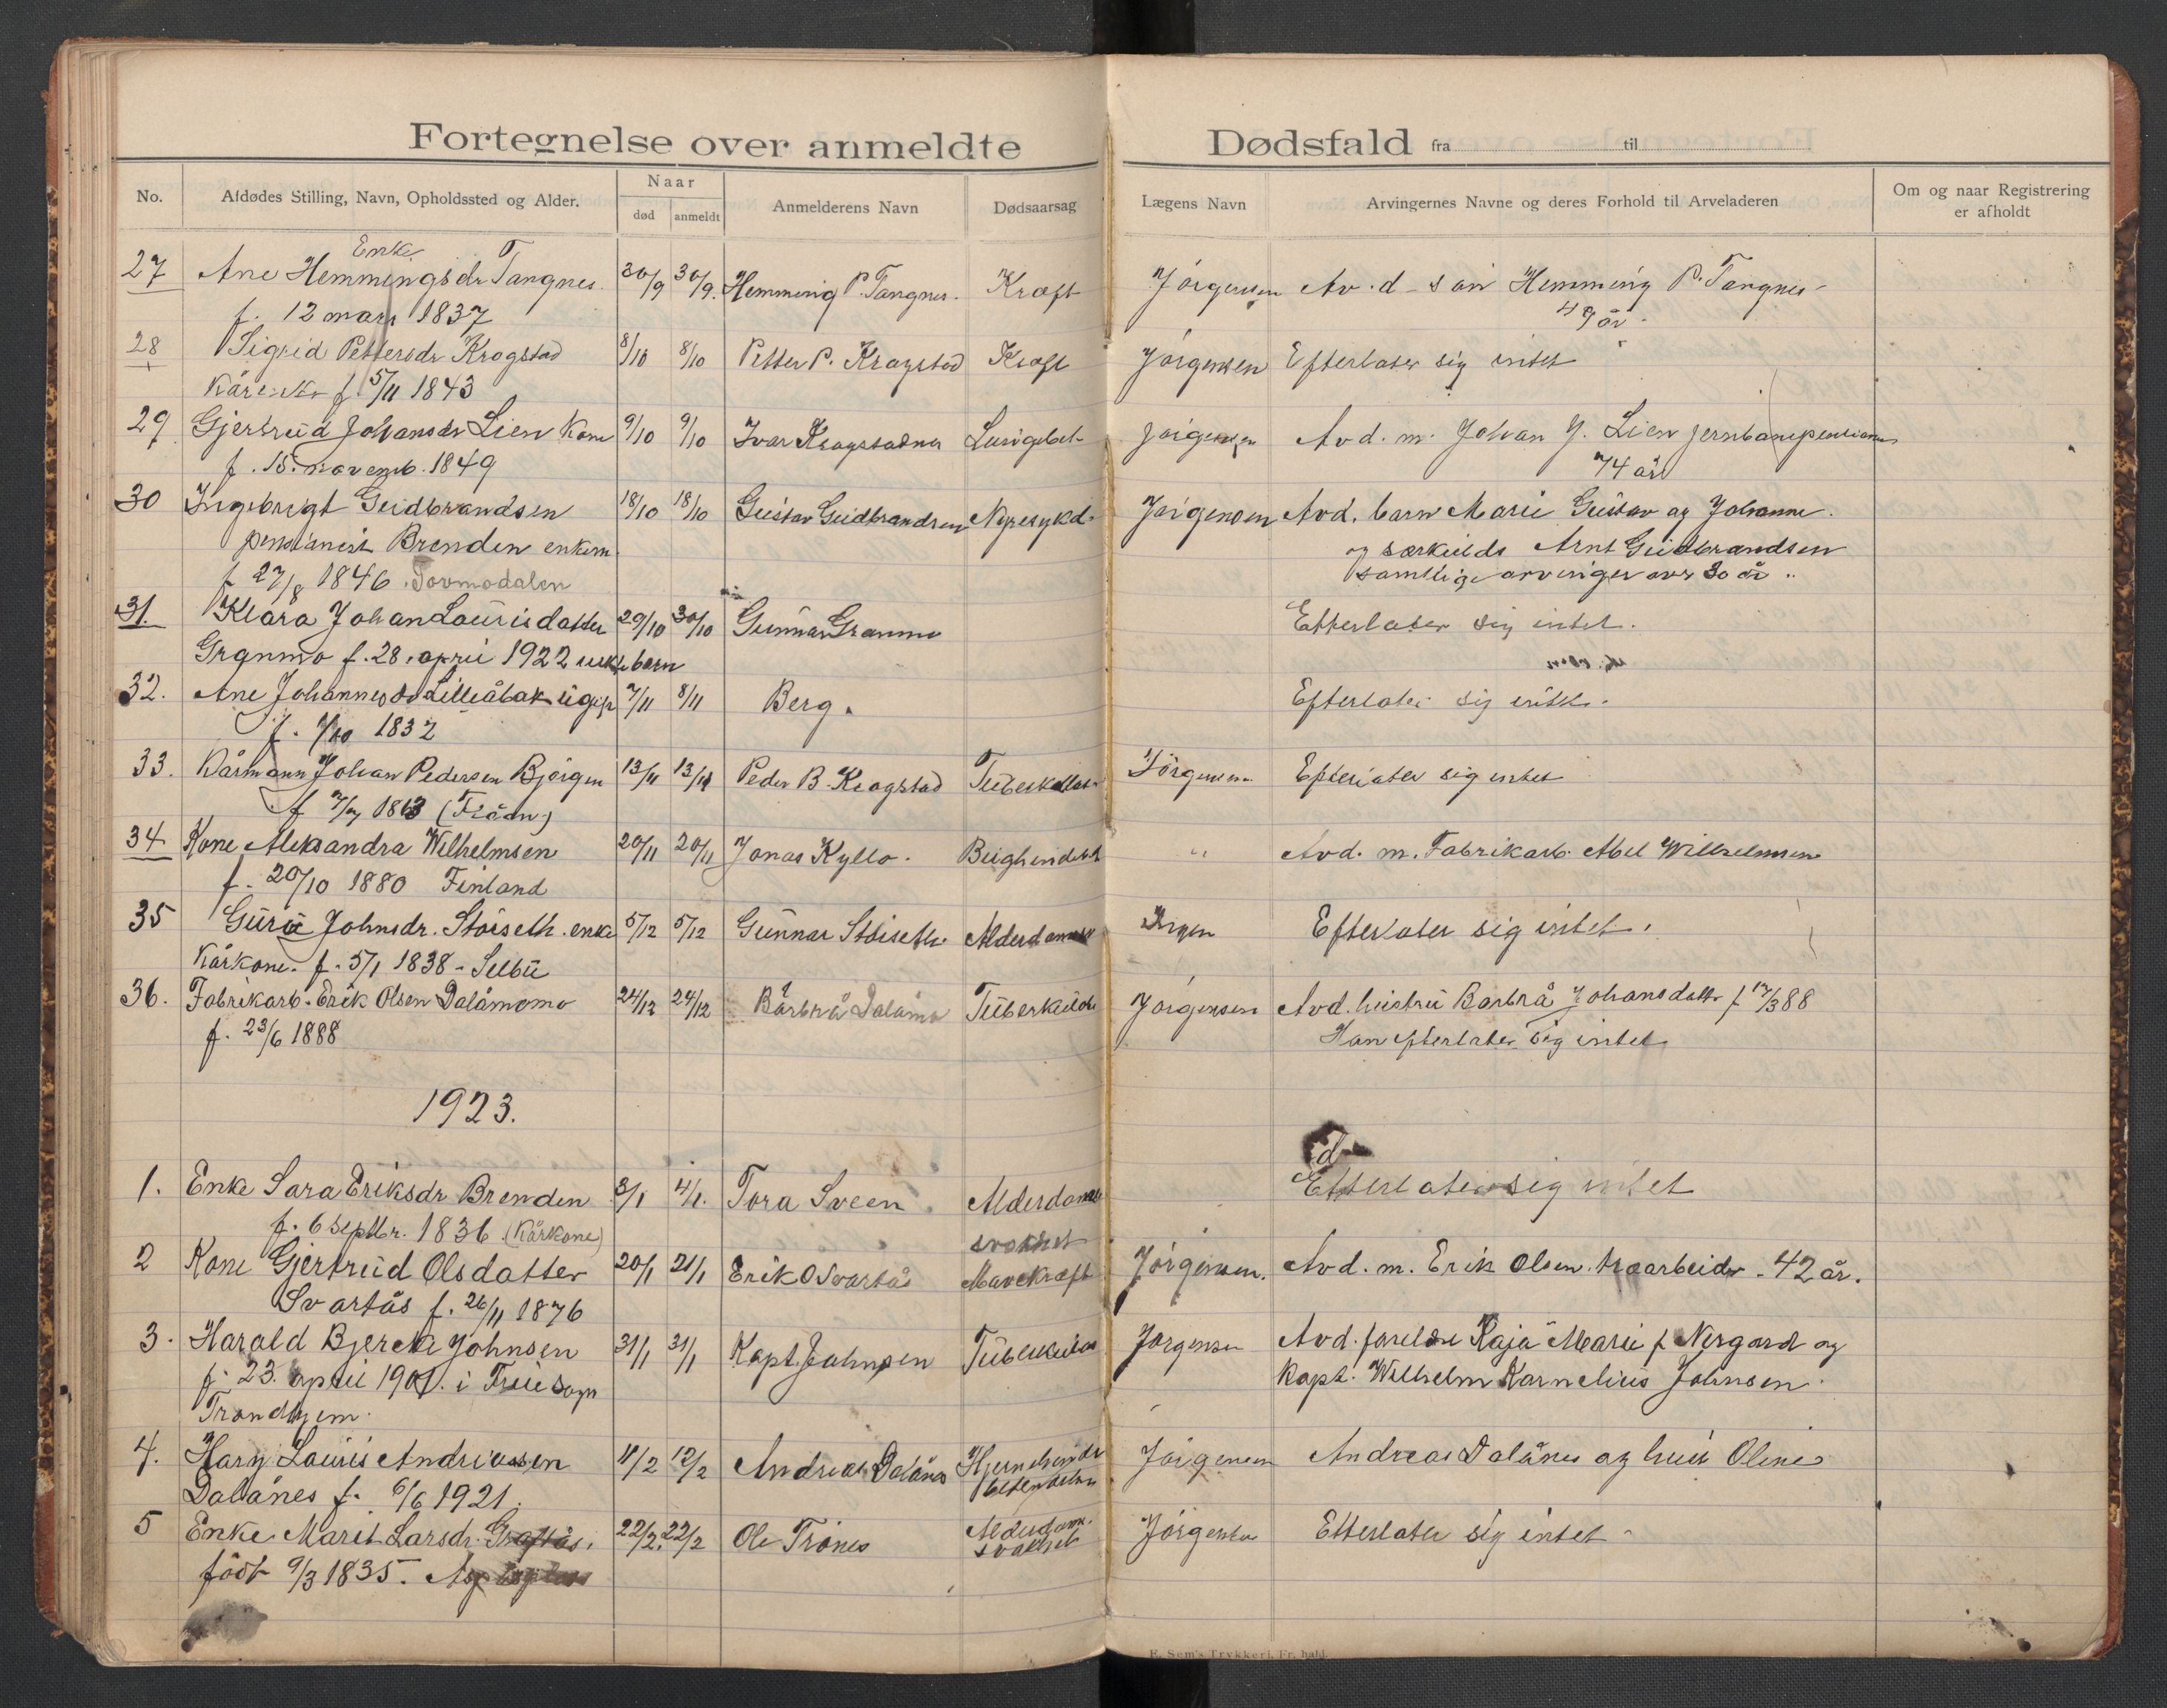 Fortegnelse over anmeldte Dødsfald fra til
No. Afdødes Stilling, Navn, Opholdssted og Alder. Naar død anmeldt Anmelderens Navn Dødsaarsag Lægens Navn Arvingernes Navne og deres Forhold til Arveladeren Om og naar Registrering er afholdt
Enke
27 Ane Hemmingsdr Tangnes. 30/9 30/9. Hemming P. Tangnes. Kræft Jörgensen Av. d. sön Hemming P. Tangnes
f. 12 mars 1837 49 år.
28 Sigrid Pettersdr Krogstad 8/10 8/10 Petter P. Krogstad Kræft Jörgensen Efterlater sig intet
Kårenke f 5/11 1843
29 Gjertrud Johansdr Lien Kone 9/10 9/10 Ivar Krogstadmo Jörgensen Avd. m. Johan J. Lien jernbanepensionist
f. 15. novemb. 1849 74 år
30 Ingebrigt Guldbrandsen 18/10 18/10 Gustav Guldbrandsen Nyresykd. Jörgensen Avd. barn Marie Gustav og Johanne.
pensionist Brenden enkem. og særkulds Arnt Guldbrandsen
f 27/8 1846 samtlige arvinger over 30 år
31. Klara Johan Laurisdatter 29/10 30/10 Gunnar Granmo Efterlater sig intet.
Granmo f. 28. april 1922 uekte barn
32. Ane Johannesdr Lilleåbak ugift 7/11 8/11 Berg. Efterlater sig intet.
f. 7/10 1832
33. Kårmann Johan Pedersen Bjørgen 13/11 13/11 Peder B. Krogstad Tuberkulos Jörgensen Efterlater sig intet
f 7/7 1863
34 Kone Aleksandra Wilhelmsen 20/11 20/11 Jonas Kyllo. Bughindebet " Avd. m. Fabrikarb. Abel Wilhelmsen
f. 20/10 1880 Finland
35 Guru Johnsdr. Stöiseth. enke 5/12 5/12 Gunnar Stöiseth. Alderdomssv Ingen Efterlater sig intet.
Kårkone. f. 5/1 1838 - Selbu
36. Fabrikarb. Erik Olsen Dalåmomo 24/12 24/12 Barbrå Dalåmo Tuberkulose Jörgensen Avd. hustru Barbrå Johansdatter f 17/3 88
f. 23/6 1888 Han efterlater sig intet
1923.
1. Enke Sara Eriksdr Brenden 3/1 4/1. Tora Sveen Alderdoms Efterlater sig intet
f. 6 Septbr. 1836 (Kårkone) svakhet
2 Kone Gjertrud Olsdatter 20/1 21/1 Erik O Svartås Mavekræft Jörgensen. Avd. m. Erik Olsen træarbeider. 42 år.
Svartås f. 26/11 1876
3. Harald Bjercke Johnsen 31/1 31/1 Kapt. Johnsen Tuberkulos Jörgensen Avd. foreldre Kaja Marie f Nergard og
f. 23. april 1901. i Frue Sogn Kapt. Wilhelm Karnelius Johnsen.
Trondhjem.
4. Hary Lauris Andreassen 11/2 12/2 Andreas Dalånes Hjernehinde Jörgensen Andreas Dalånes og hust Oline
Dalånes f. 6/6 1921. betendelse
5 Enke Marit Larsdr. Graftås. 22/2. 22/2 Ole Trönes Alderdom. Jörgensen Efterlater sig intet.
född 9/3 1835. svakhet
E. Sem's Trykkeri, Fr. hald.